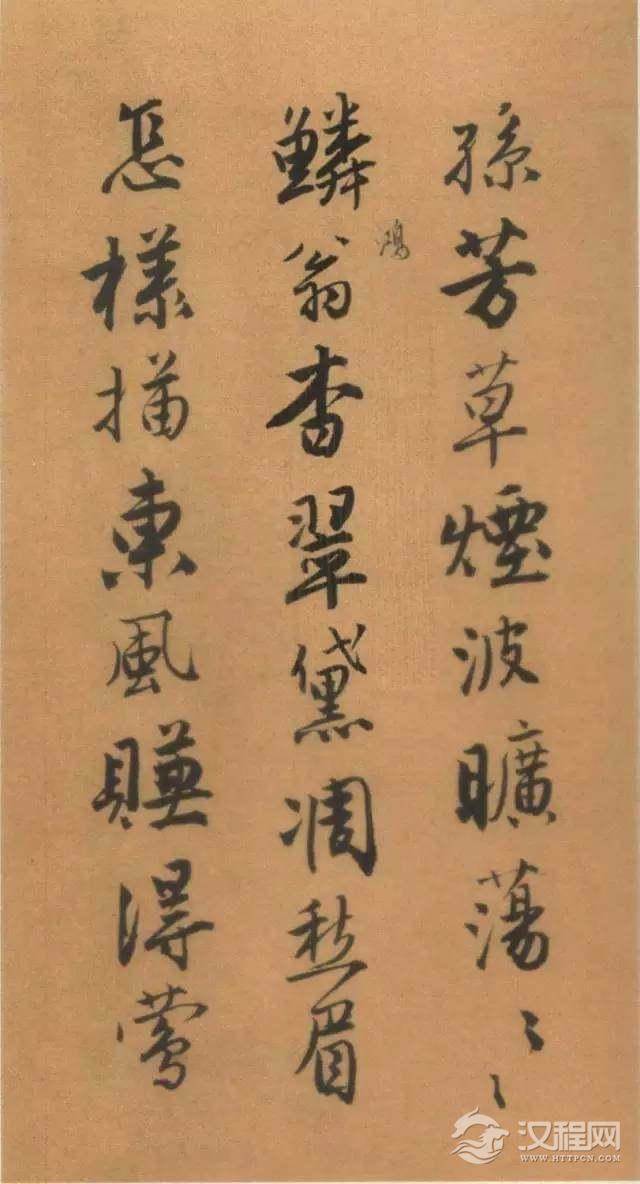 孫芳草煙波曠蕩〻〻
鱗鴻翁杳翠黛凋愁眉
怎樣描東風賺得鶯
汉程网
WWW.HTTPCN.COM